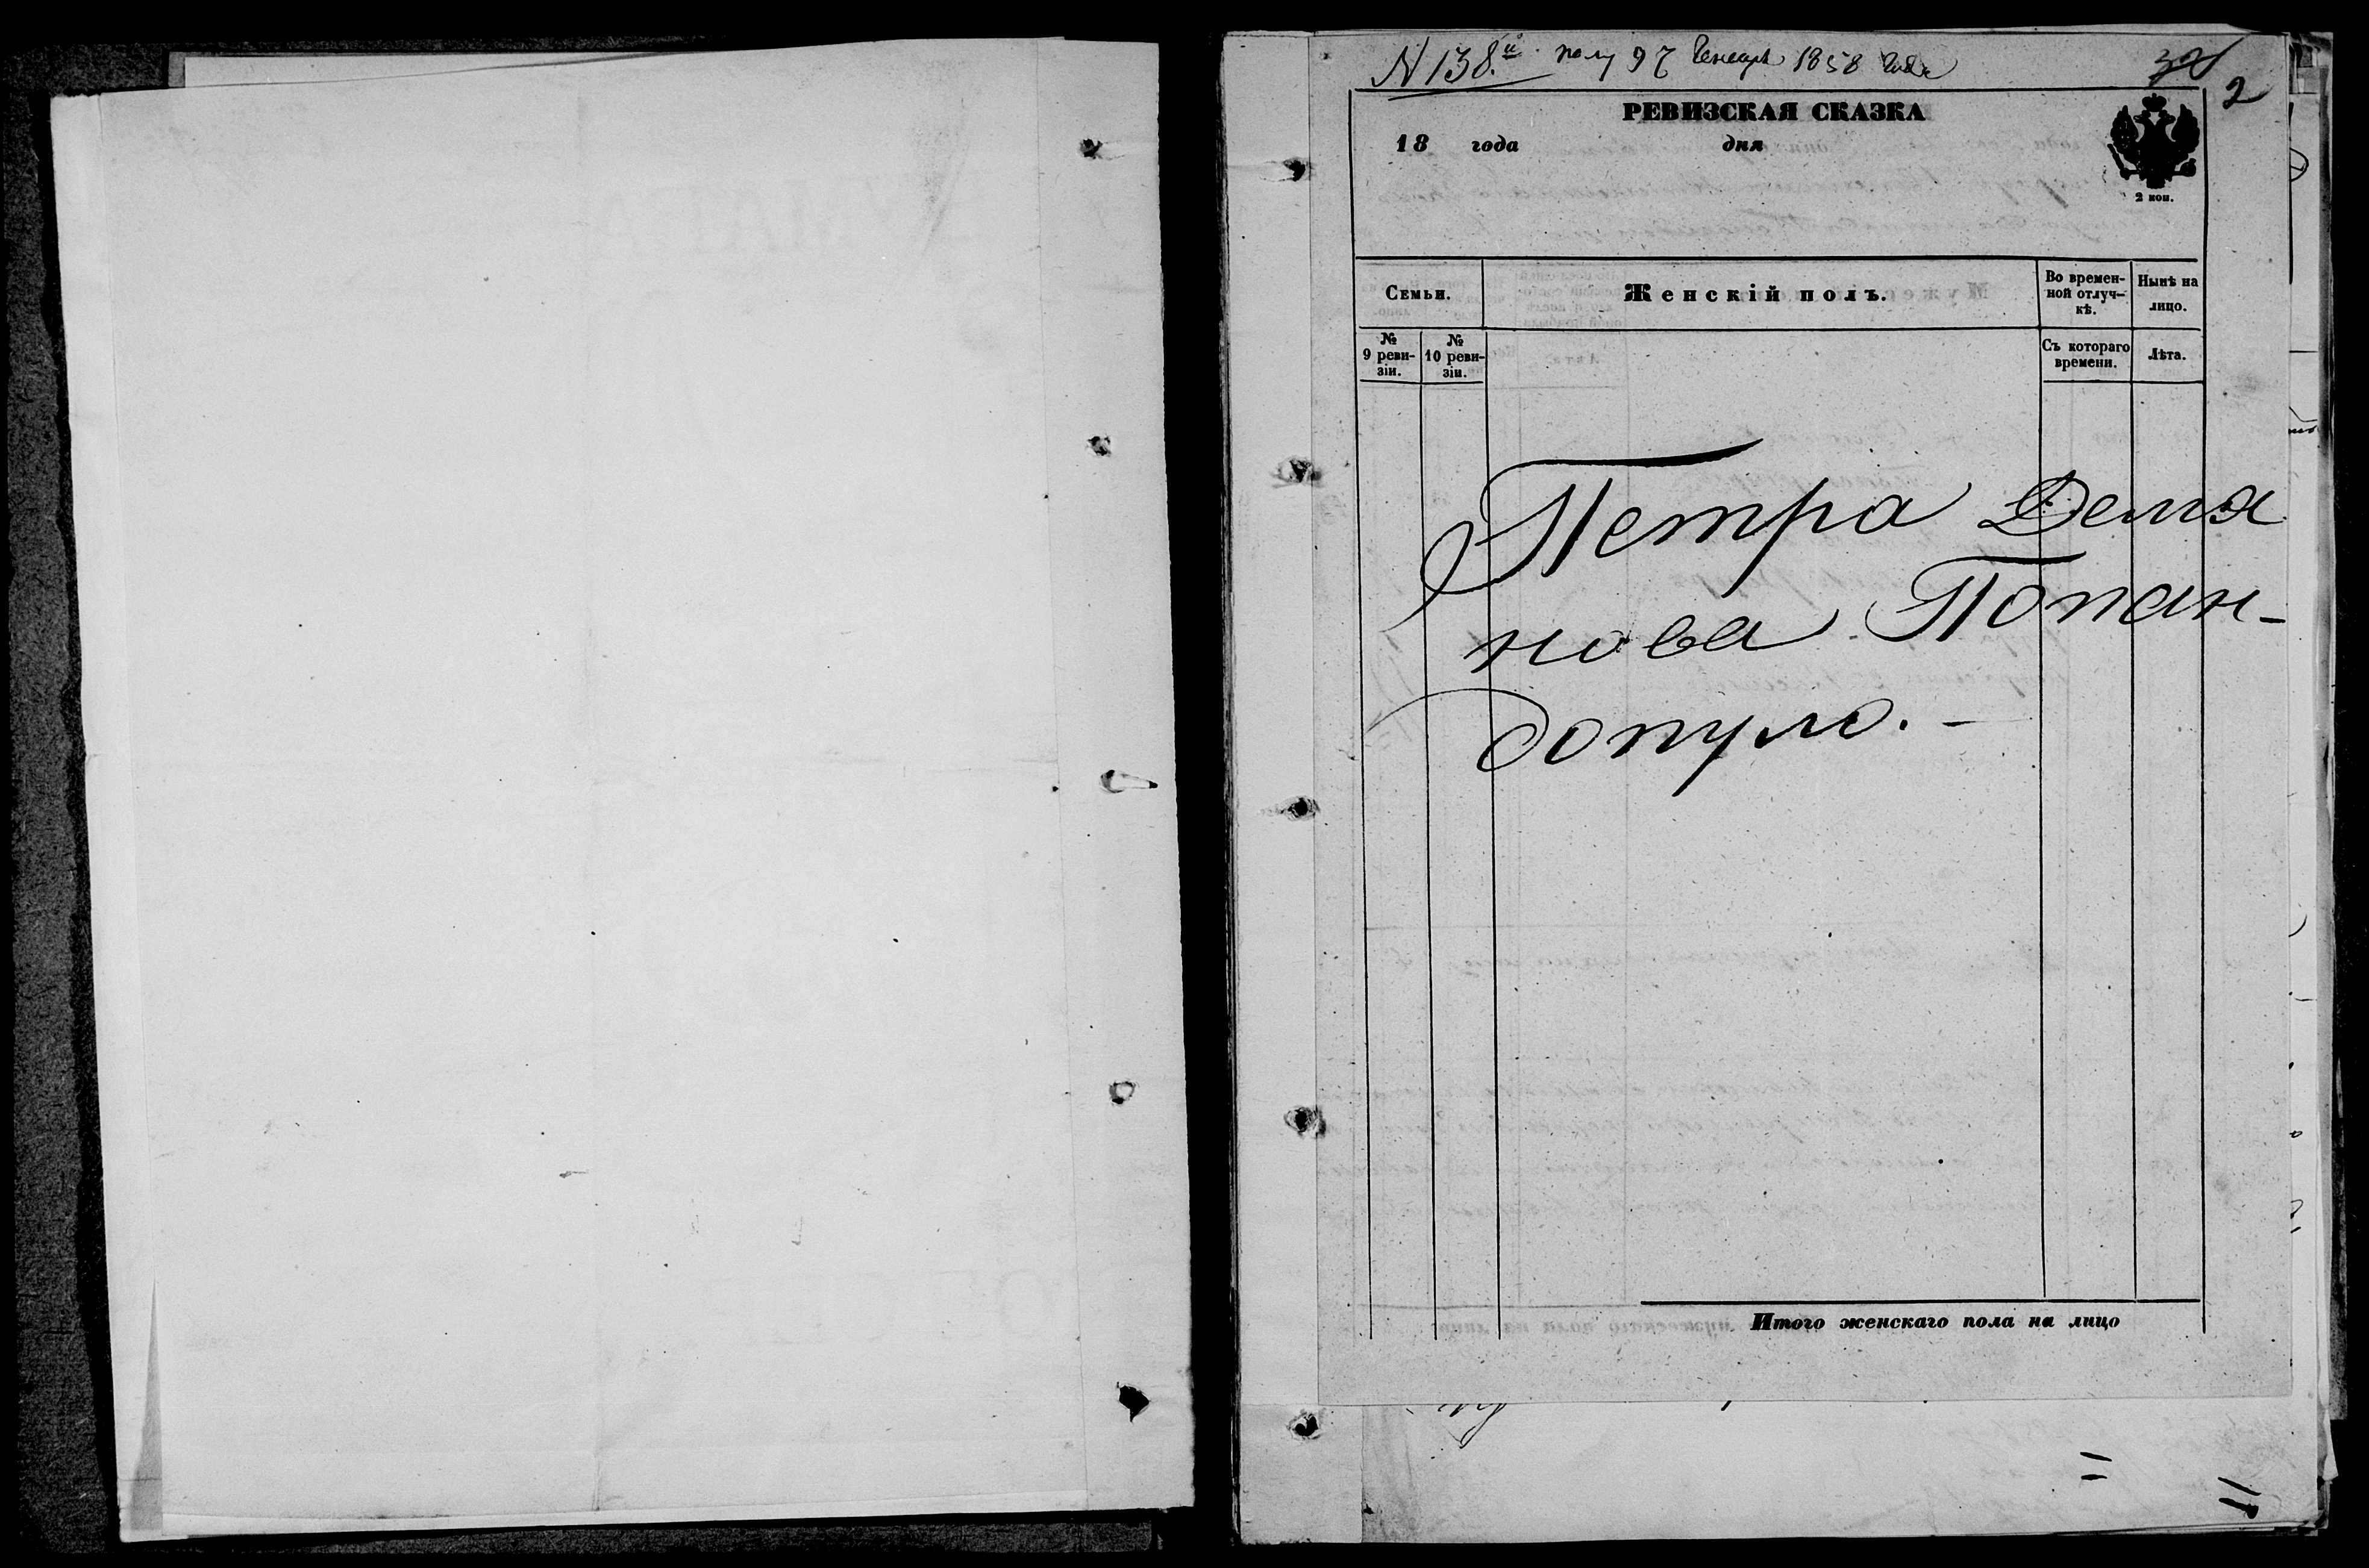 N 138.й полу 97 Генваря 1858 года
2
РЕВИЗСКАЯ СКАЗКА
18 года дня
2 коп.
Семьи. Женскій полъ. Во времен-
ной отлуч-
кѣ. Нынѣ на
лицо.
№
9 реви-
зіи. №
10 реви-
зіи. Съ котораго
времени. Лѣта.
Петра Демья
нова Попан-
допуло.-
Итого женскаго пола на лицо